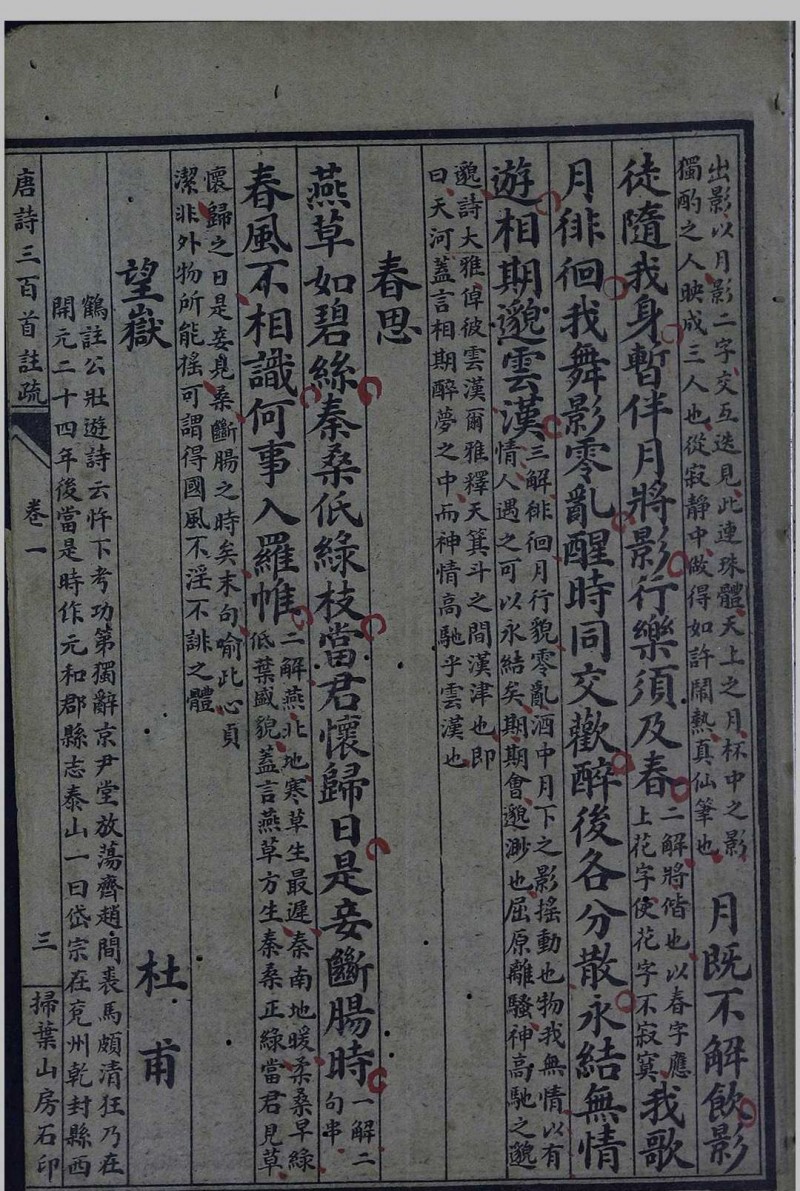 出影以月影二字交互迭見此連珠體天上之月杯中之影
獨酌之人映成三人也從寂靜中做得如許鬧熱真仙筆也
月既不解飲影
徒隨我身暫伴月將影行樂須及春
二解將偕也以春字應
上花字使花字不寂寞
我歌
月徘徊我舞影零亂醒時同交歡醉後各分散永結無情
遊相期邈雲漢
三解徘徊月行貌零亂酒中月下之影搖動也物我無情以有
情人遇之可以永結矣期期會邈渺也屈原離騷神高馳之邈
邈詩大雅倬彼雲漢爾雅釋天箕斗之間漢津也即
曰天河蓋言相期醉夢之中而神情高馳乎雲漢也
春思
燕草如碧絲秦桑低綠枝當君懷歸日是妾斷腸時
一解二
句串
春風不相識何事入羅帷
二解燕北地寒草生最遲秦南地暖柔桑早綠
低葉盛貌蓋言燕草方生秦桑正綠當君見草
懷歸之日是妾見桑斷腸之時矣末句喻此心貞
潔非外物所能搖可謂得國風不淫不誹之體
望嶽
杜甫
鶴註公壯遊詩云忤下考功第獨辭京尹堂放蕩齊趙間裘馬頗清狂乃在
開元二十四年後當是時作元和郡縣志泰山一曰岱宗在兗州乾封縣西
唐詩三百首註疏
卷一
三
掃葉山房石印